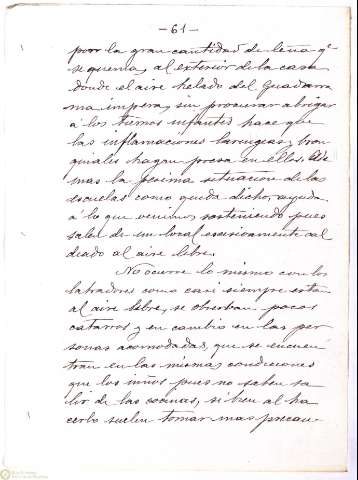 -61-
poor la gran cantidad de leña qe
se quema, al exterior de la casa
donde el aire helado del Guadarra
ma impera, sin procurar abrigar
á los tiernos infantes hace que
las inflamaciones laringias, bron
quiales hagan presa en ellos. Ade
mas la pesima situacion de las
escuelas como queda dicho, ayuda
á lo que venimos sosteniendo pues
salen de un local escesivamente cal
deado al aire libre.
No ocurre lo mismo con los
labradores como casi siempre estan
al aire libre, se observan pocos
catarros y en cambio en las per
sonas acomodadas, que se encuen
tran en las mismas condiciones
que los niños pues no saben sa
lir de las cocinas, si bien al ha
cerlo suelen tomar mas precau-